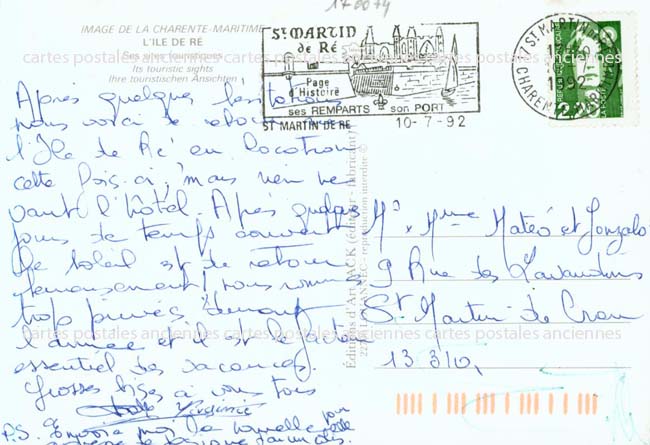 170074
IMAGE DE LA CHARENTE-MARITIME
L'ILE DE RÉ
Ses sites touristiques
Its touristic sights
Ihre touristischen Ansichten
St MARTIN
de Ré
Page
d'Histoire
ses REMPARTS son PORT
ST MARTIN DE RE 10-7-92
17 ST MARTIN DE RE
1992
CHARENTE MARITIME
cartes postales anciennes cartes postales anciennes
Après quelques
nous voici de retour
l'Ile de Ré en location
cette fois-ci, mais rien ne
vaut l'hôtel. Après quelques
jours de temps couvert
le soleil est de retour
heureusement! nous sommes
trop privés
l'année et il est le facteur
essentiel des vacances.
Grosses bises à vous tous
Virginie
P.S. Envoie moi la nouvelle
Mr, Mme Mateó et Gonzalo
9 Rue des
St Martin de Crau
13310,
Editions d'Art JACK (éditeur - fabricant)
reproduction interdite ©
cartes postales anciennes cartes postales anciennes